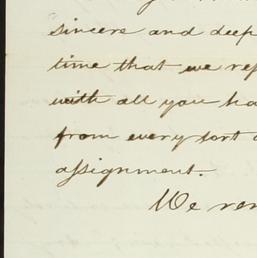 sincere and deep
time that we rep
with all you ha
from every sort o
assignment.
We ren